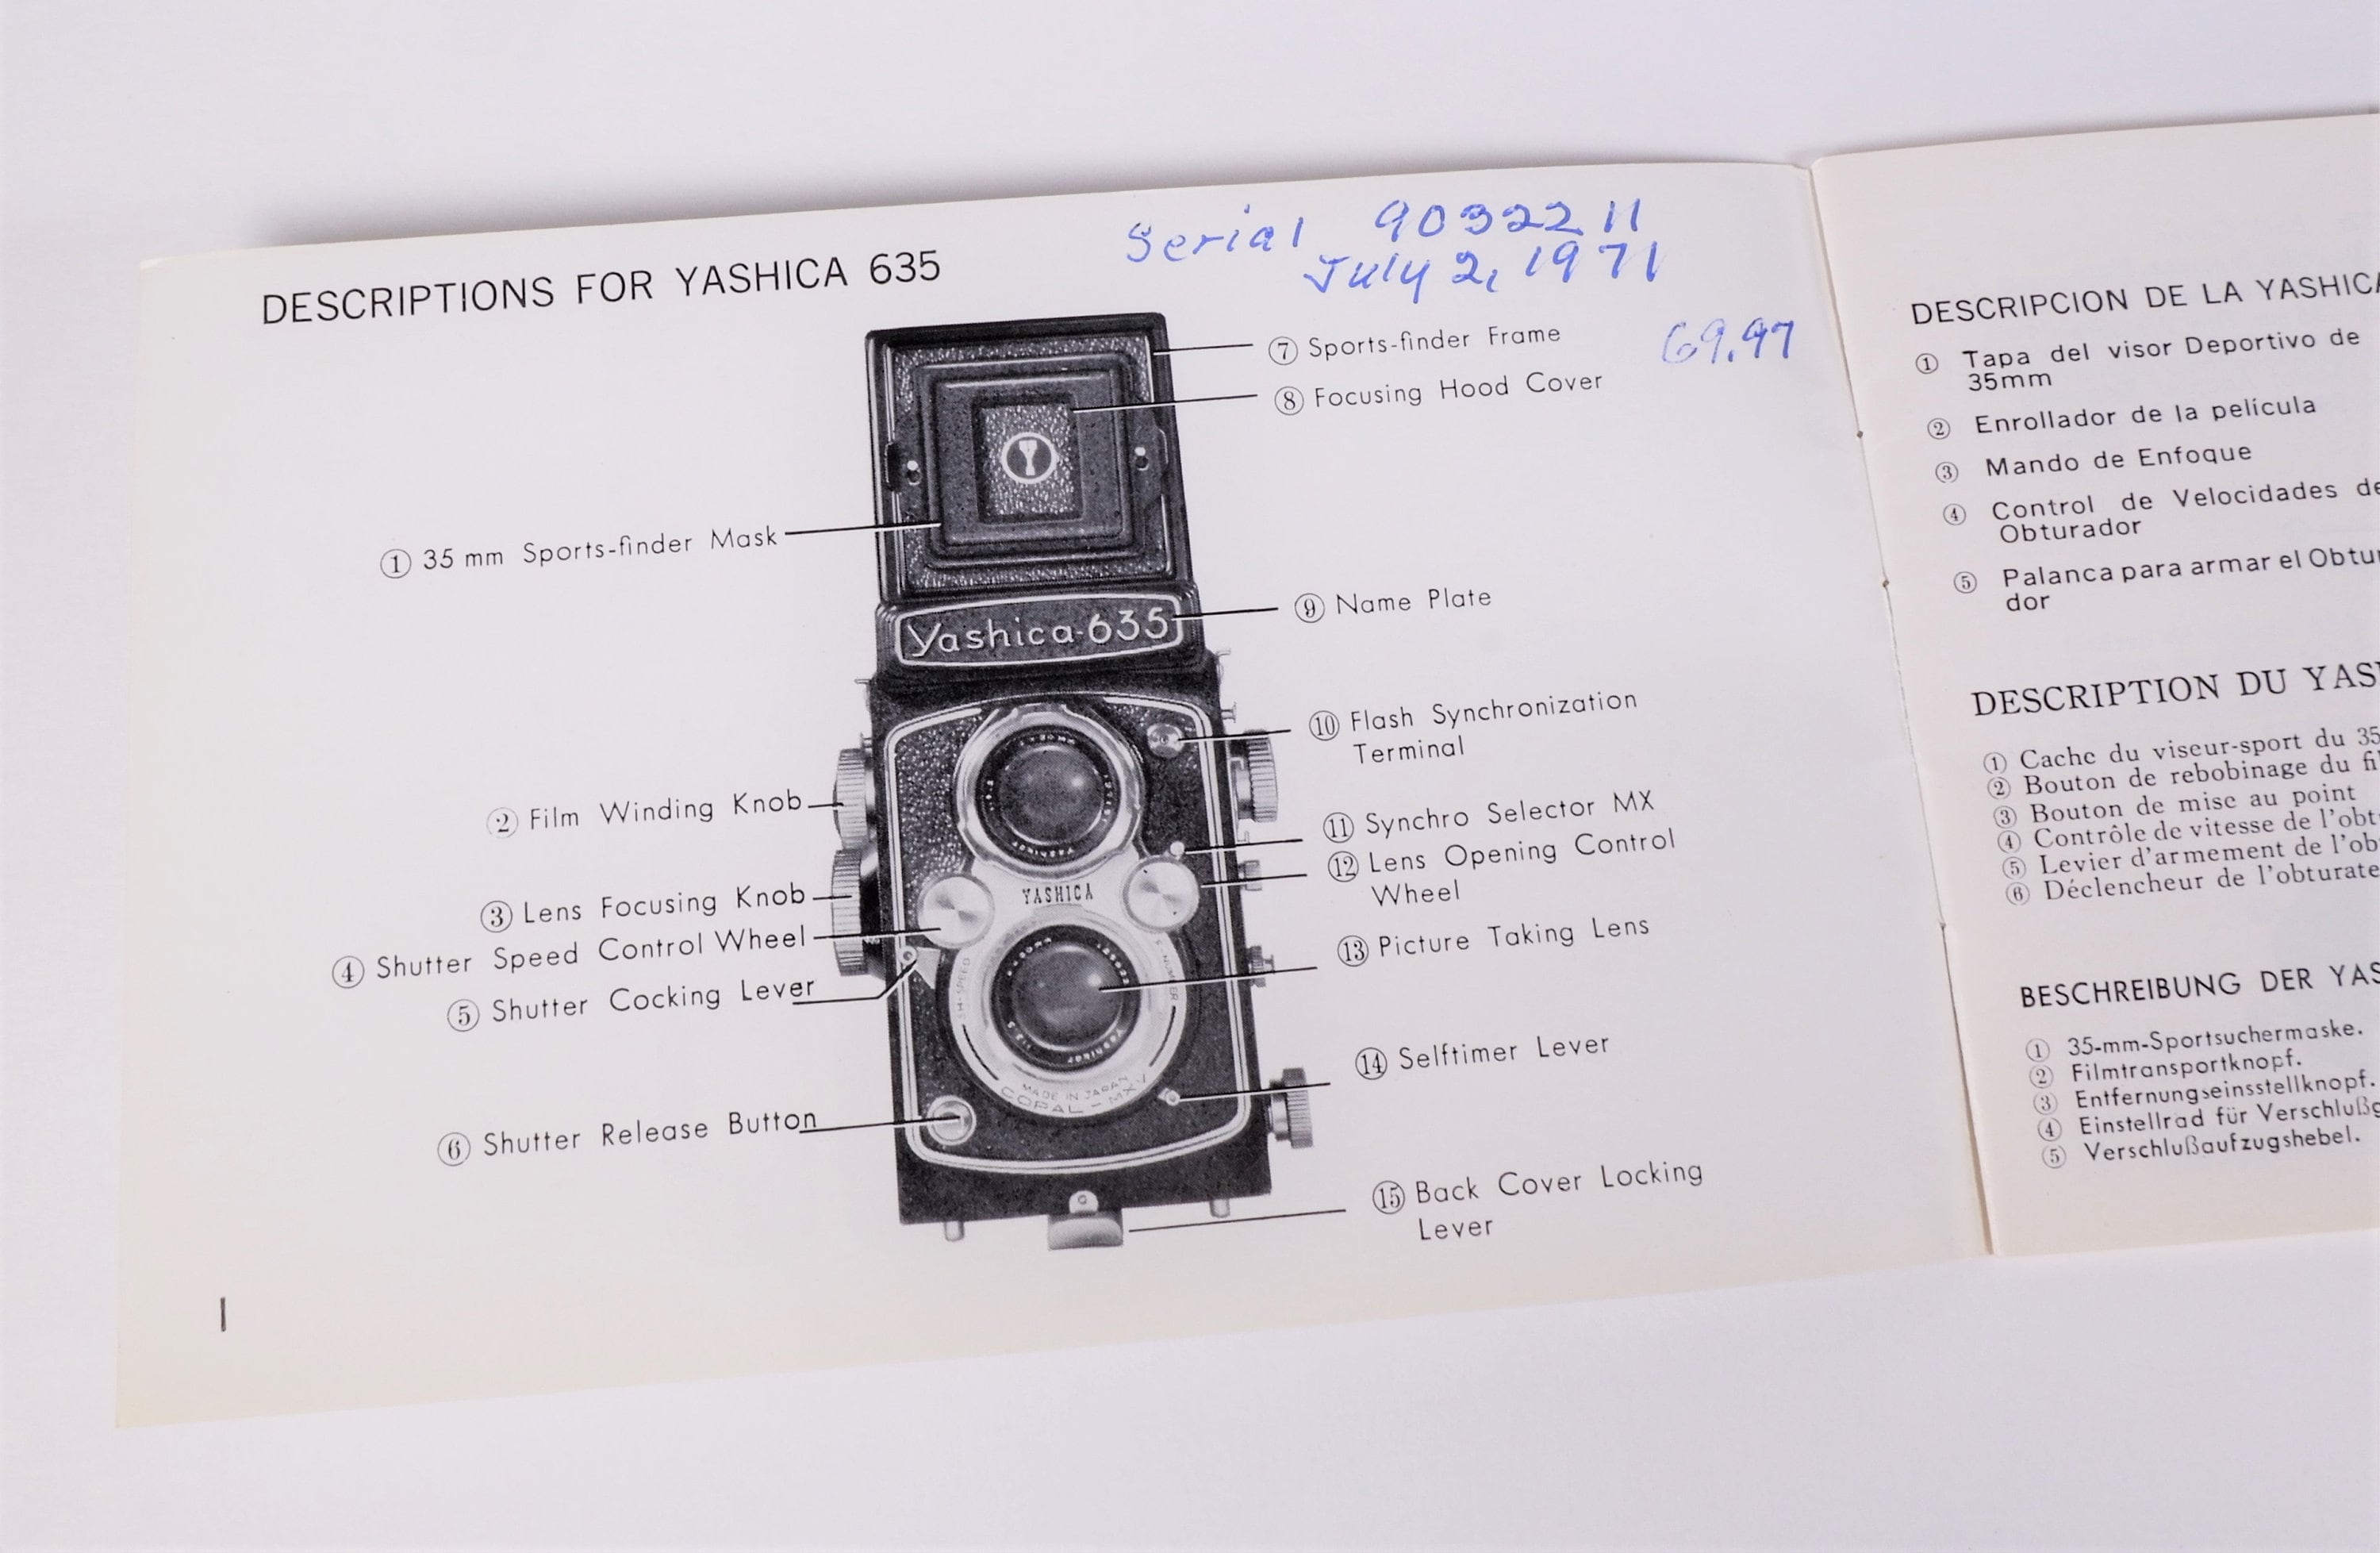 DESCRIPTIONS FOR YASHICA 635
Serial 9032211
July 2, 1971
69.97
① 35 mm Sports-finder Mask
② Film Winding Knob
③ Lens Focusing Knob
④ Shutter Speed Control Wheel
⑤ Shutter Cocking Lever
⑥ Shutter Release Button
⑦ Sports-finder Frame
⑧ Focusing Hood Cover
⑨ Name Plate
⑩ Flash Synchronization
Terminal
⑪ Synchro Selector MX
⑫ Lens Opening Control
Wheel
⑬ Picture Taking Lens
⑭ Selftimer Lever
⑮ Back Cover Locking
Lever
Y
Yashica-635
YASHICA
MADE IN JAPAN
COPAL-MXV
1
DESCRIPCION DE LA YASHICA
① Tapa del visor Deportivo de
35mm
② Enrollador de la película
③ Mando de Enfoque
④ Control de Velocidades de
Obturador
⑤ Palanca para armar el Obtu
dor
DESCRIPTION DU YAS
① Cache du viseur-sport du 35
② Bouton de rebobinage du fi
③ Bouton de mise au point
④ Contrôle de vitesse de l'obt
⑤ Levier d'armement de l'ob
⑥ Déclencheur de l'obturate
BESCHREIBUNG DER YAS
① 35-mm-Sportsuchermaske.
② Filmtransportknopf.
③ Entfernungseinsstellknopf.
④ Einstellrad für Verschlußg
⑤ Verschlußaufzugshebel.